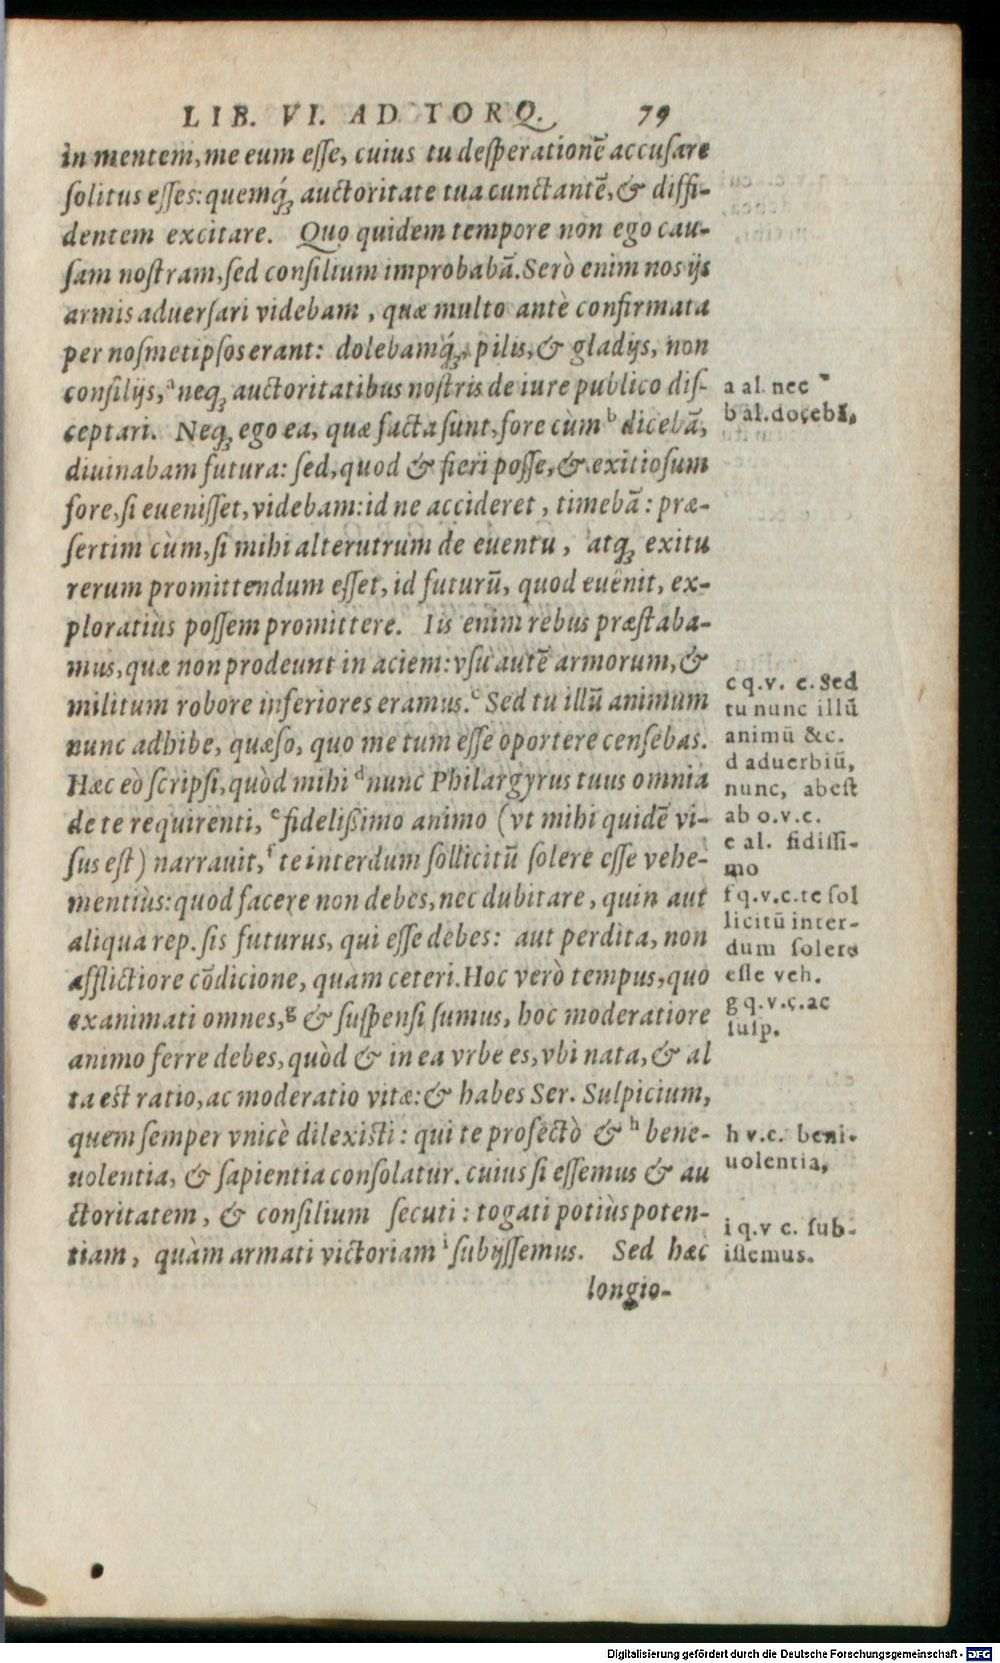 LIB. VI. AD TORQ. 79
in mentem, me eum eſſe, cuius tu deſperationē accuſare
ſolitus eſſes: quemq́ꝫ auctoritate tua cunctantē, & diffi-
dentem excitare. Quo quidem tempore non ego cau-
ſam noſtram, ſed conſilium improbabā. Serò enim nos ijs
armis aduerſari videbam, quæ multo antè confirmata
per noſmetipſos erant: dolebamq́ꝫ, pilis, & gladijs, non
conſilijs, ᵃ neqꝫ auctoritatibus noſtris de iure publico diſ-
ceptari. Neqꝫ ego ea, quæ facta ſunt, fore cùm ᵇ dicebā,
diuinabam futura: ſed, quod & fieri poſſe, & exitioſum
fore, ſi eueniſſet, videbam: id ne accideret, timebā: præ-
ſertim cùm, ſi mihi alterutrum de euentu, atqꝫ exitu
rerum promittendum eſſet, id futurū, quod euenit, ex-
ploratiùs poſſem promittere. Iis enim rebus præſtaba-
mus, quæ non prodeunt in aciem: vſu autē armorum, &
militum robore inferiores eramus. ᶜ Sed tu illū animum
nunc adhibe, quæſo, quo me tum eſſe oportere cenſebas.
Hæc eò ſcripſi, quòd mihi ᵈ nunc Philargyrus tuus omnia
de te requirenti, ᵉ fideliſſimo animo (vt mihi quidē vi-
ſus eſt) narrauit, ᶠ te interdum ſollicitū ſolere eſſe vehe-
mentiùs: quod facere non debes, nec dubitare, quin aut
aliqua rep. ſis futurus, qui eſſe debes: aut perdita, non
afflictiore cōdicione, quam ceteri. Hoc verò tempus, quo
exanimati omnes, ᵍ & ſuſpenſi ſumus, hoc moderatiore
animo ferre debes, quòd & in ea vrbe es, vbi nata, & al
ta est ratio, ac moderatio vitæ: & habes Ser. Sulpicium,
quem ſemper vnicè dilexisti: qui te profectò & ʰ bene-
uolentia, & ſapientia conſolatur. cuius ſi eſſemus & au
ctoritatem, & conſilium ſecuti: togati potiùs poten-
tiam, quàm armati victoriam ⁱ ſubijſſemus. Sed hæc
longio-
a al. nec
b al. docebā,
c q.v. c. Sed
tu nunc illū
animū &c.
d aduerbiū,
nunc, abeſt
ab o.v.c.
e al. fidiſſi-
mo
f q.v.c. te ſol
licitū inter-
dum ſolere
eſſe veh.
g q.v.c. ac
ſuſp.
h v.c. beni-
uolentia,
i q.v c. ſub-
iſſemus.
Digitalisierung gefördert durch die Deutsche Forschungsgemeinschaft - DFG